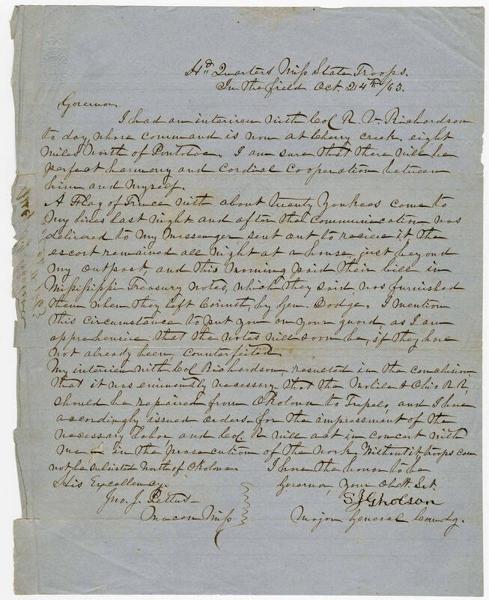 Hd Quarters Miss State Troops.
In the field Oct 24th/63.
Governor
I had an interview with Col R V Richardson
to day whose command is now at Cherry creek eight
miles North of Pontotoc. I am sure that there will be
perfect harmony and Cordial Cooperation between
him and myself.
A Flag of Truce with about Twenty Yankees came to
my lines last night and after the Communication was
delivered to my Messenger sent out to receive it the
escort remained all night at a house just beyond
my outpost, and this morning paid their bill in
Mississippi Treasury Notes, which they said was furnished
them when they left Corinth, by Gen. Dodge, I mention
this circumstance to put you on your guard as I am
apprehensive that the notes will soon be, if they have
not already been, Counterfeited.
My interview with Col Richardson, resulted in the conclusion
that it was eminently necessary that the Mobile & Ohio R.R,
should be repaired from Okolona to Tupelo, and I have
accordingly issued orders for the impressment of the
necessary labor and Col R will act in concert with
me in the prosecution of the work, Without troops can
not be subsisted North of Okolona
I have the honor to be
His Excellency
Governor, Your Obt. Svt
Jno. J. Pettus
S J Gholson
Macon Miss
Major General Comdg.